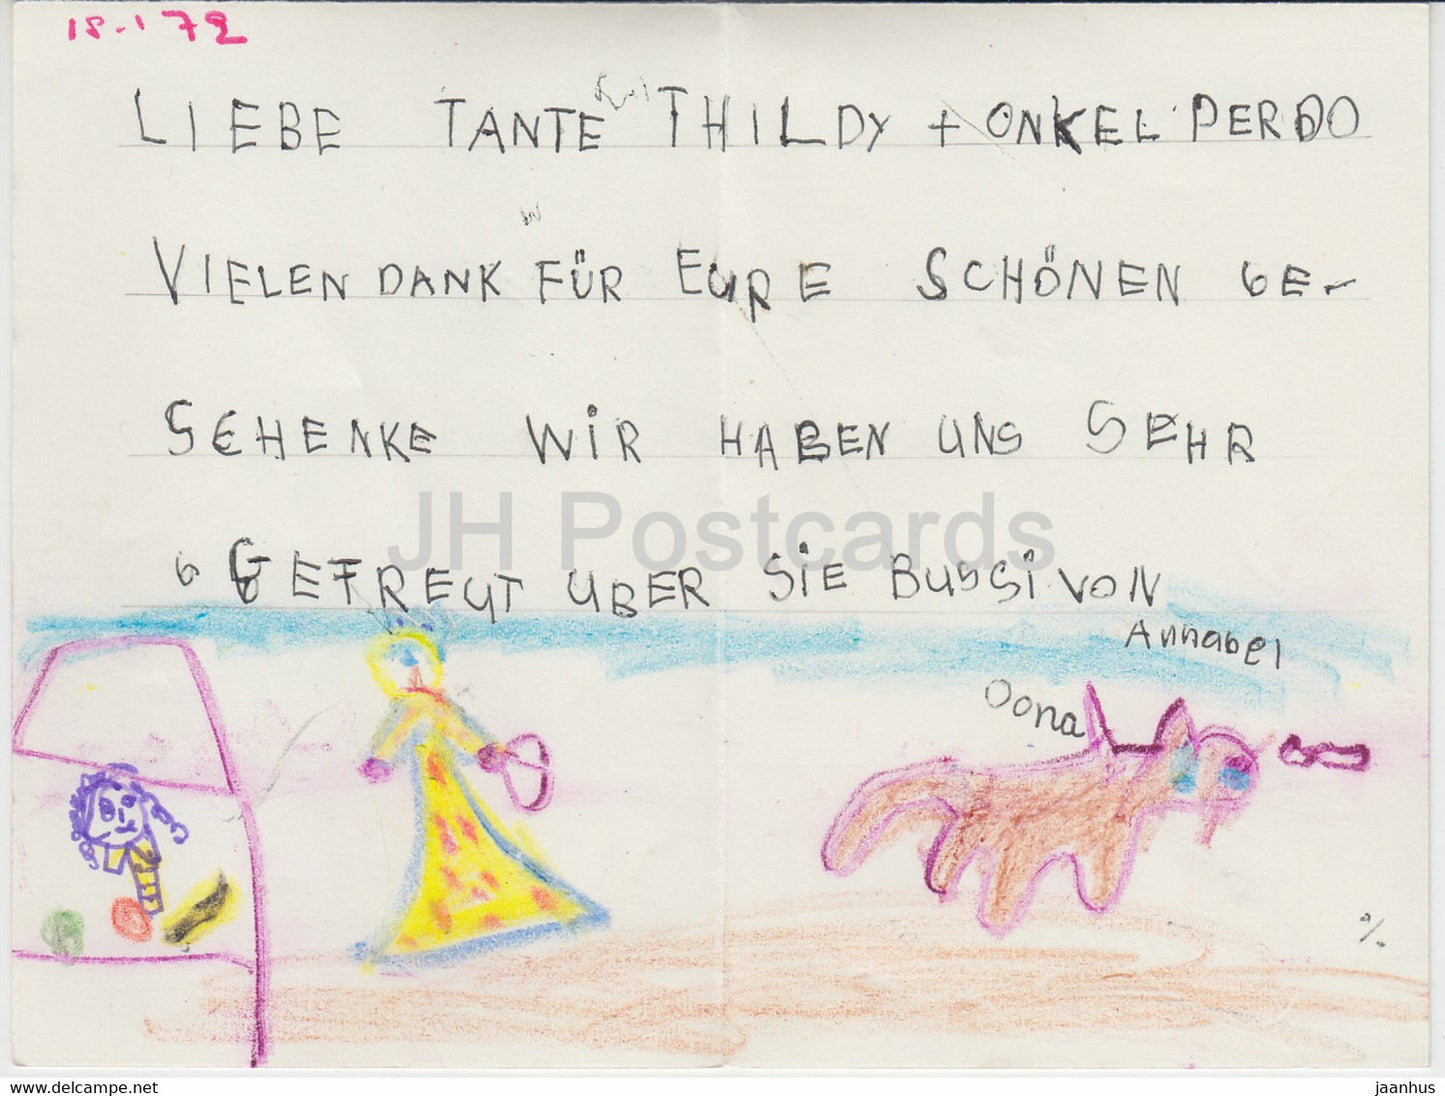 18.1 72
LIEBE TANTE THILDY + ONKEL PERDO
VIELEN DANK FÜR EURE SCHÖNEN GE-
SCHENKE WIR HABEN UNS SEHR
GEFREUT UBER SIE BUSSI VON
Annabel
Oona
JH Postcards
%
www.delcampe.net
jaanhus